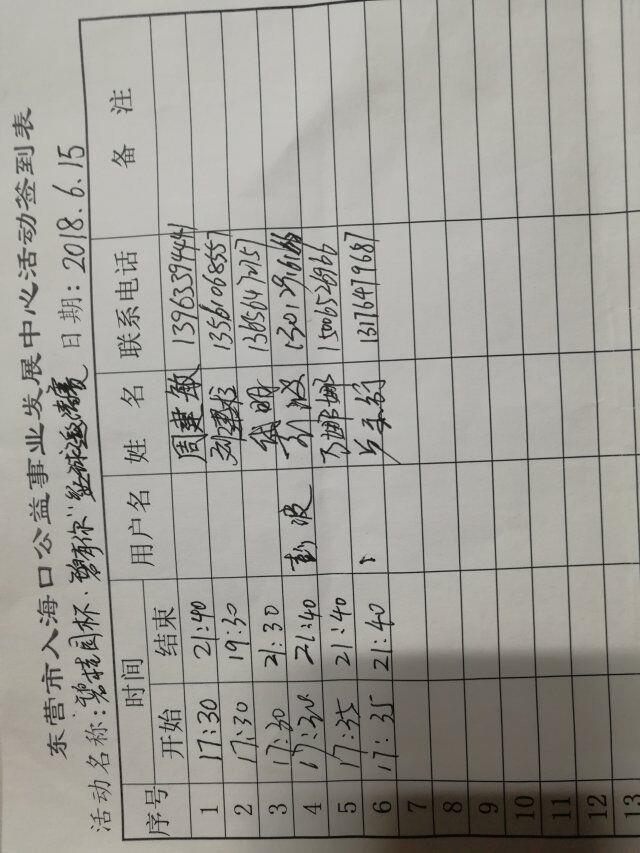 东营市入海口公益事业发展中心活动签到表
活动名称:"碧桂园杯·碧有你" 篮球邀请赛 日期: 2018.6.15
序号 时间 用户名 姓名 联系电话 备注
开始 结束
1 17:30 21:40 周建敏 13963394441
2 17:30 19:30 13561068557
3 17:30 21:30
4 17:30 21:40 彭波 彭波
5 17:35 21:40 娜娜 15006526966
6 17:35 21:40 13176479687
7
8
9
10
11
12
13